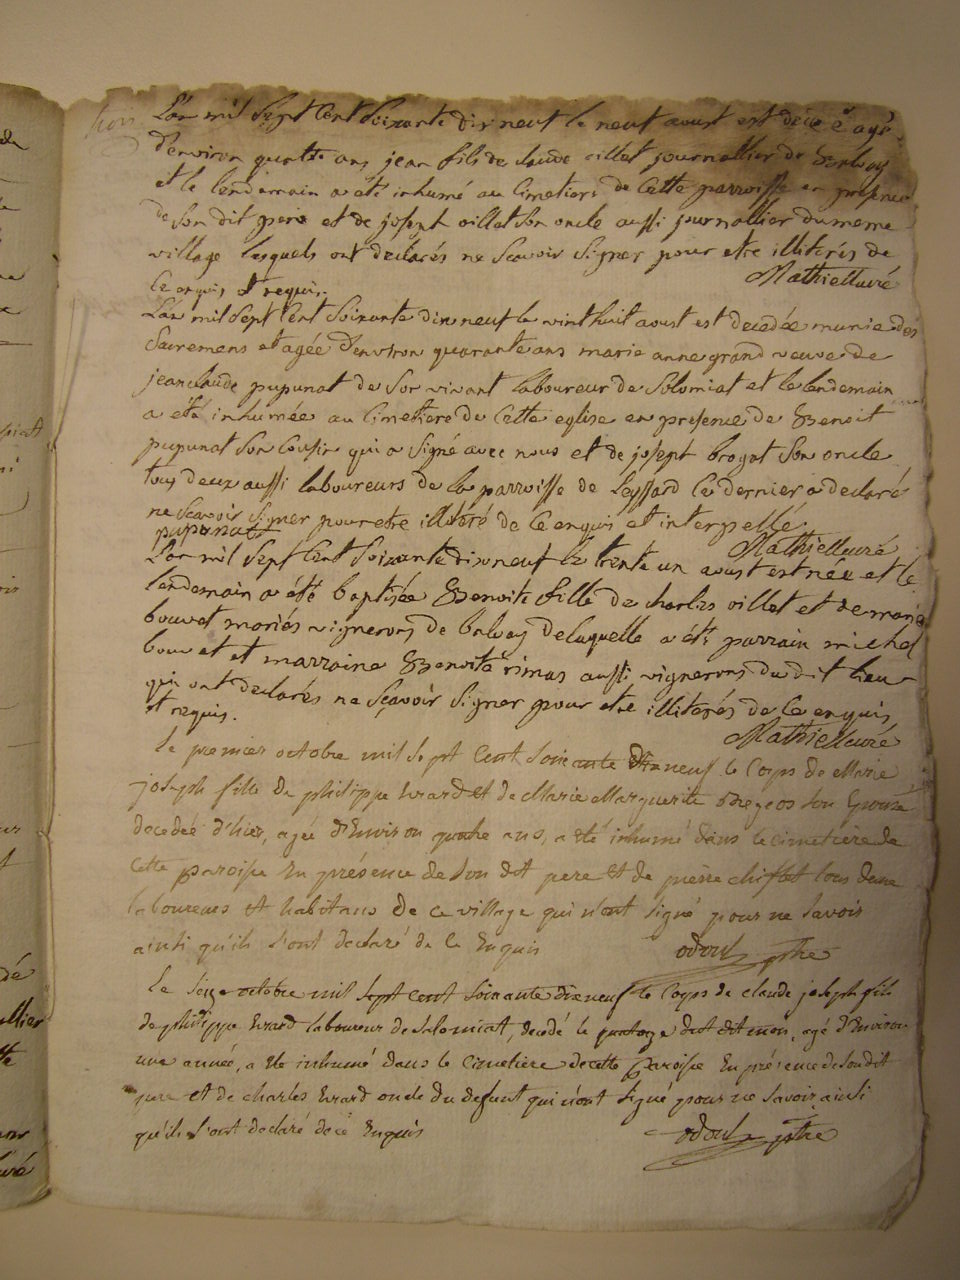 trois
L'an mil Sept Cent Soixante dix neuf le neuf aoust est décédé agé
d'environ quatre ans jean fils de claude oillet journallier de
et le lendemain a été inhumé au Cimetiere de Cette parroisse en presence
de Son dit pere et de joseph oillet Son oncle aussi journallier du meme
village lesquels ont declarés ne Scavoir Signer pour etre illiterés de
Ce enquis et requis. Mathieu curé
L'an mil Sept Cent Soixante dix neuf le vint huit aoust est decedée munie des
Sacremens et agée d'environ quarante ans marie anne grand veuve de
jean claude pupunat de Son vivant laboureur de Solomiat et le lendemain
a été inhumée au Cimetiere de Cette eglise en presence de Benoit
pupunat Son Cousin qui a Signé avec nous et de joseph brogat Son oncle
tous deux aussi laboureurs de la parroisse de Leyssard Ce dernier a declaré
ne Scavoir Signer pour etre illitéré de Ce enquis et interpellé
pupunat Mathieu curé
L'an mil Sept Cent Soixante dix neuf le trente un aoust est née et le
lendemain a été baptisée Benoite fille de charles oillet et de marie
bouvet mariés vignerons de balvay de laquelle a été parrain michel
bouvet et marraine Benoite rimas aussi vignerons du dit lieu
qui ont declarés ne Sçavoir Signer pour etre illiterés de Ce enquis
et requis. Mathieu curé
Le premier octobre mil Sept Cent Soixante dix neuf le Corps de Marie
joseph fille de philippe Evrard et de Marie Marguerite Son Epouse
decedée d'hier, agée d'Environ quatre ans, a eté inhumé dans le cimetiere de
Cette paroisse En présence de Son dit pere et de pierre chiflet tous deux
laboureurs et habitans de ce village qui n'ont Signé pour ne Savoir
ainsi qu'ils l'ont declaré de Ce Enquis odoul ptre
Le Seize octobre mil Sept Cent Soixante dix neuf le Corps de claude joseph fils
de philippe Evrard laboureur de Solomiat, decedé le quatorze dud dit mois, agé d'Environ
une année, a eté inhumé dans le Cimetiere de cette Paroisse En présence de Son dit
pere et de charles Evrard oncle du defunt qui n'ont Signé pour ne Savoir ainsi
qu'ils l'ont declaré de ce Enquis odoul ptre